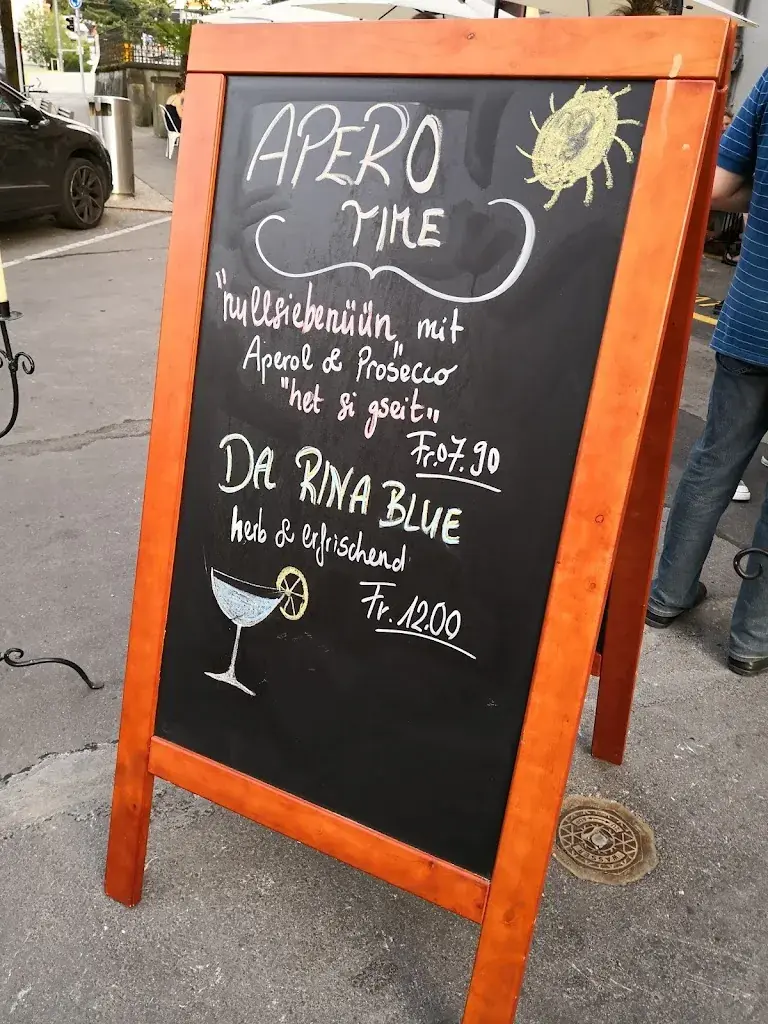 APERO
TIME
"nullsiebenüün" mit
Aperol & Prosecco
"het si gseit"
Fr. 07.90
DA RINA BLUE
herb & erfrischend
Fr. 12.00